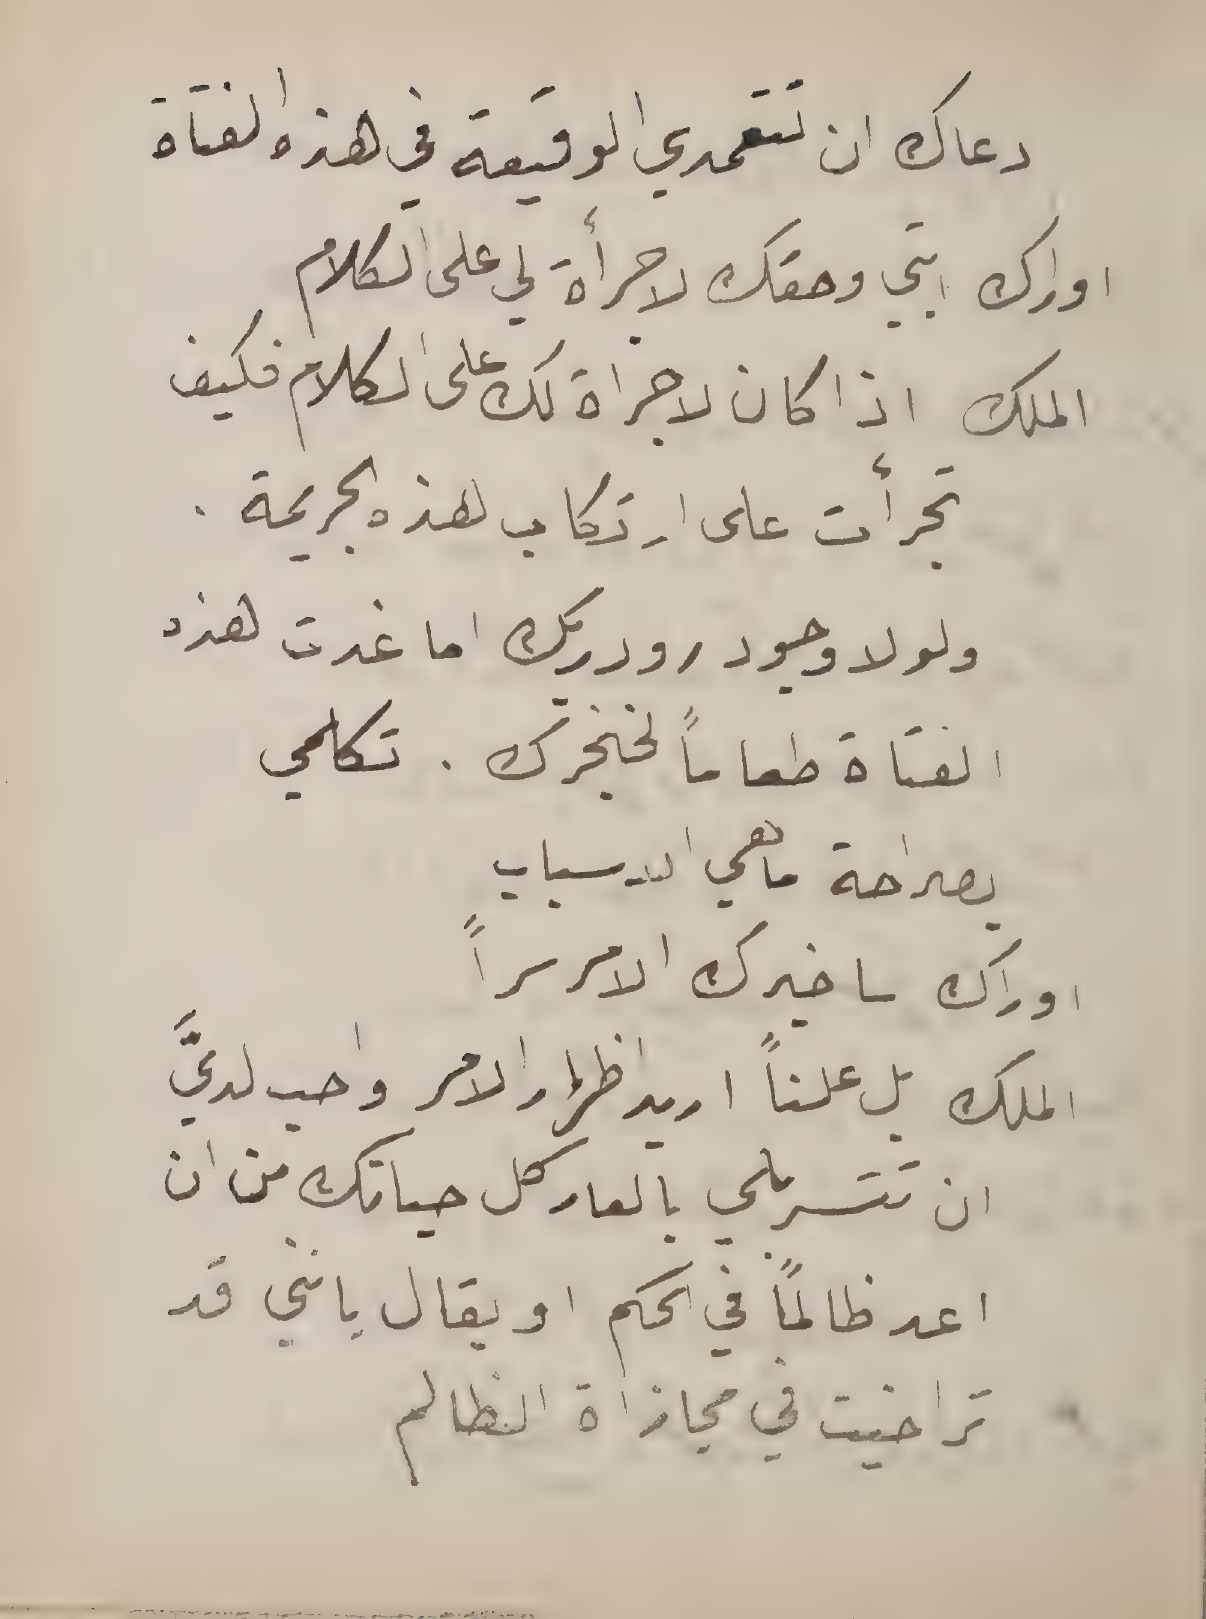 دعاك ان تتعمدي الوقيعة في هذه الفتاة
اوراك ابتي وحقك لا جرأة لي على الكلام
الملك اذا كان لا جراة لك على الكلام فكيف
تجرأت على ارتكاب هذه الجريمة .
ولولا وجود رودريك اما غدت هذه
الفتاة طعاماً لخنجرك . تكلمي
بصراحة ما هي الاسباب
اوراك ساخبرك الامر سراً
الملك بل علناً اريد اظهار الامر واحب لديَّ
ان تتسربلي بالعار كل حياتك من ان
اعد ظالماً في الحكم او يقال بانني قد
تراخيت في مجازاة الظالم